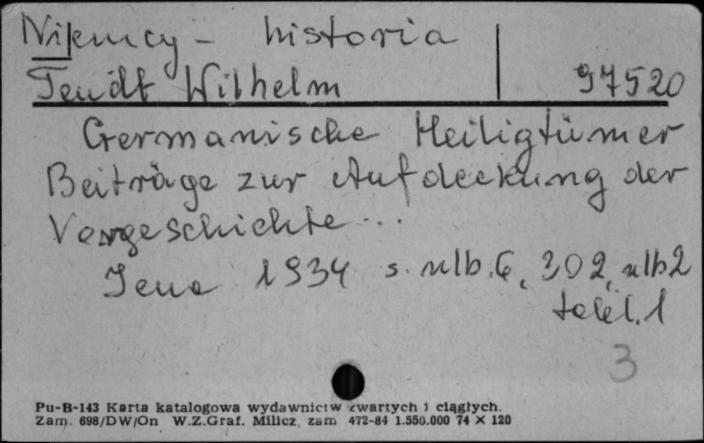 Niemcy - historia
Teudt Wilhelm 97520
Germanische Heiligtümer
Beiträge zur Aufdeckung der
Vorgeschichte...
Jena 1934 s. nlb. 6, 302, nlb 2
tabl. 1
3
Pu-B-143 Karta katalogowa wydawnictw zwartych i ciągłych.
Zam. 698/DW/On W.Z.Graf. Milicz, zam 472-84 1.550.000 74 X 120